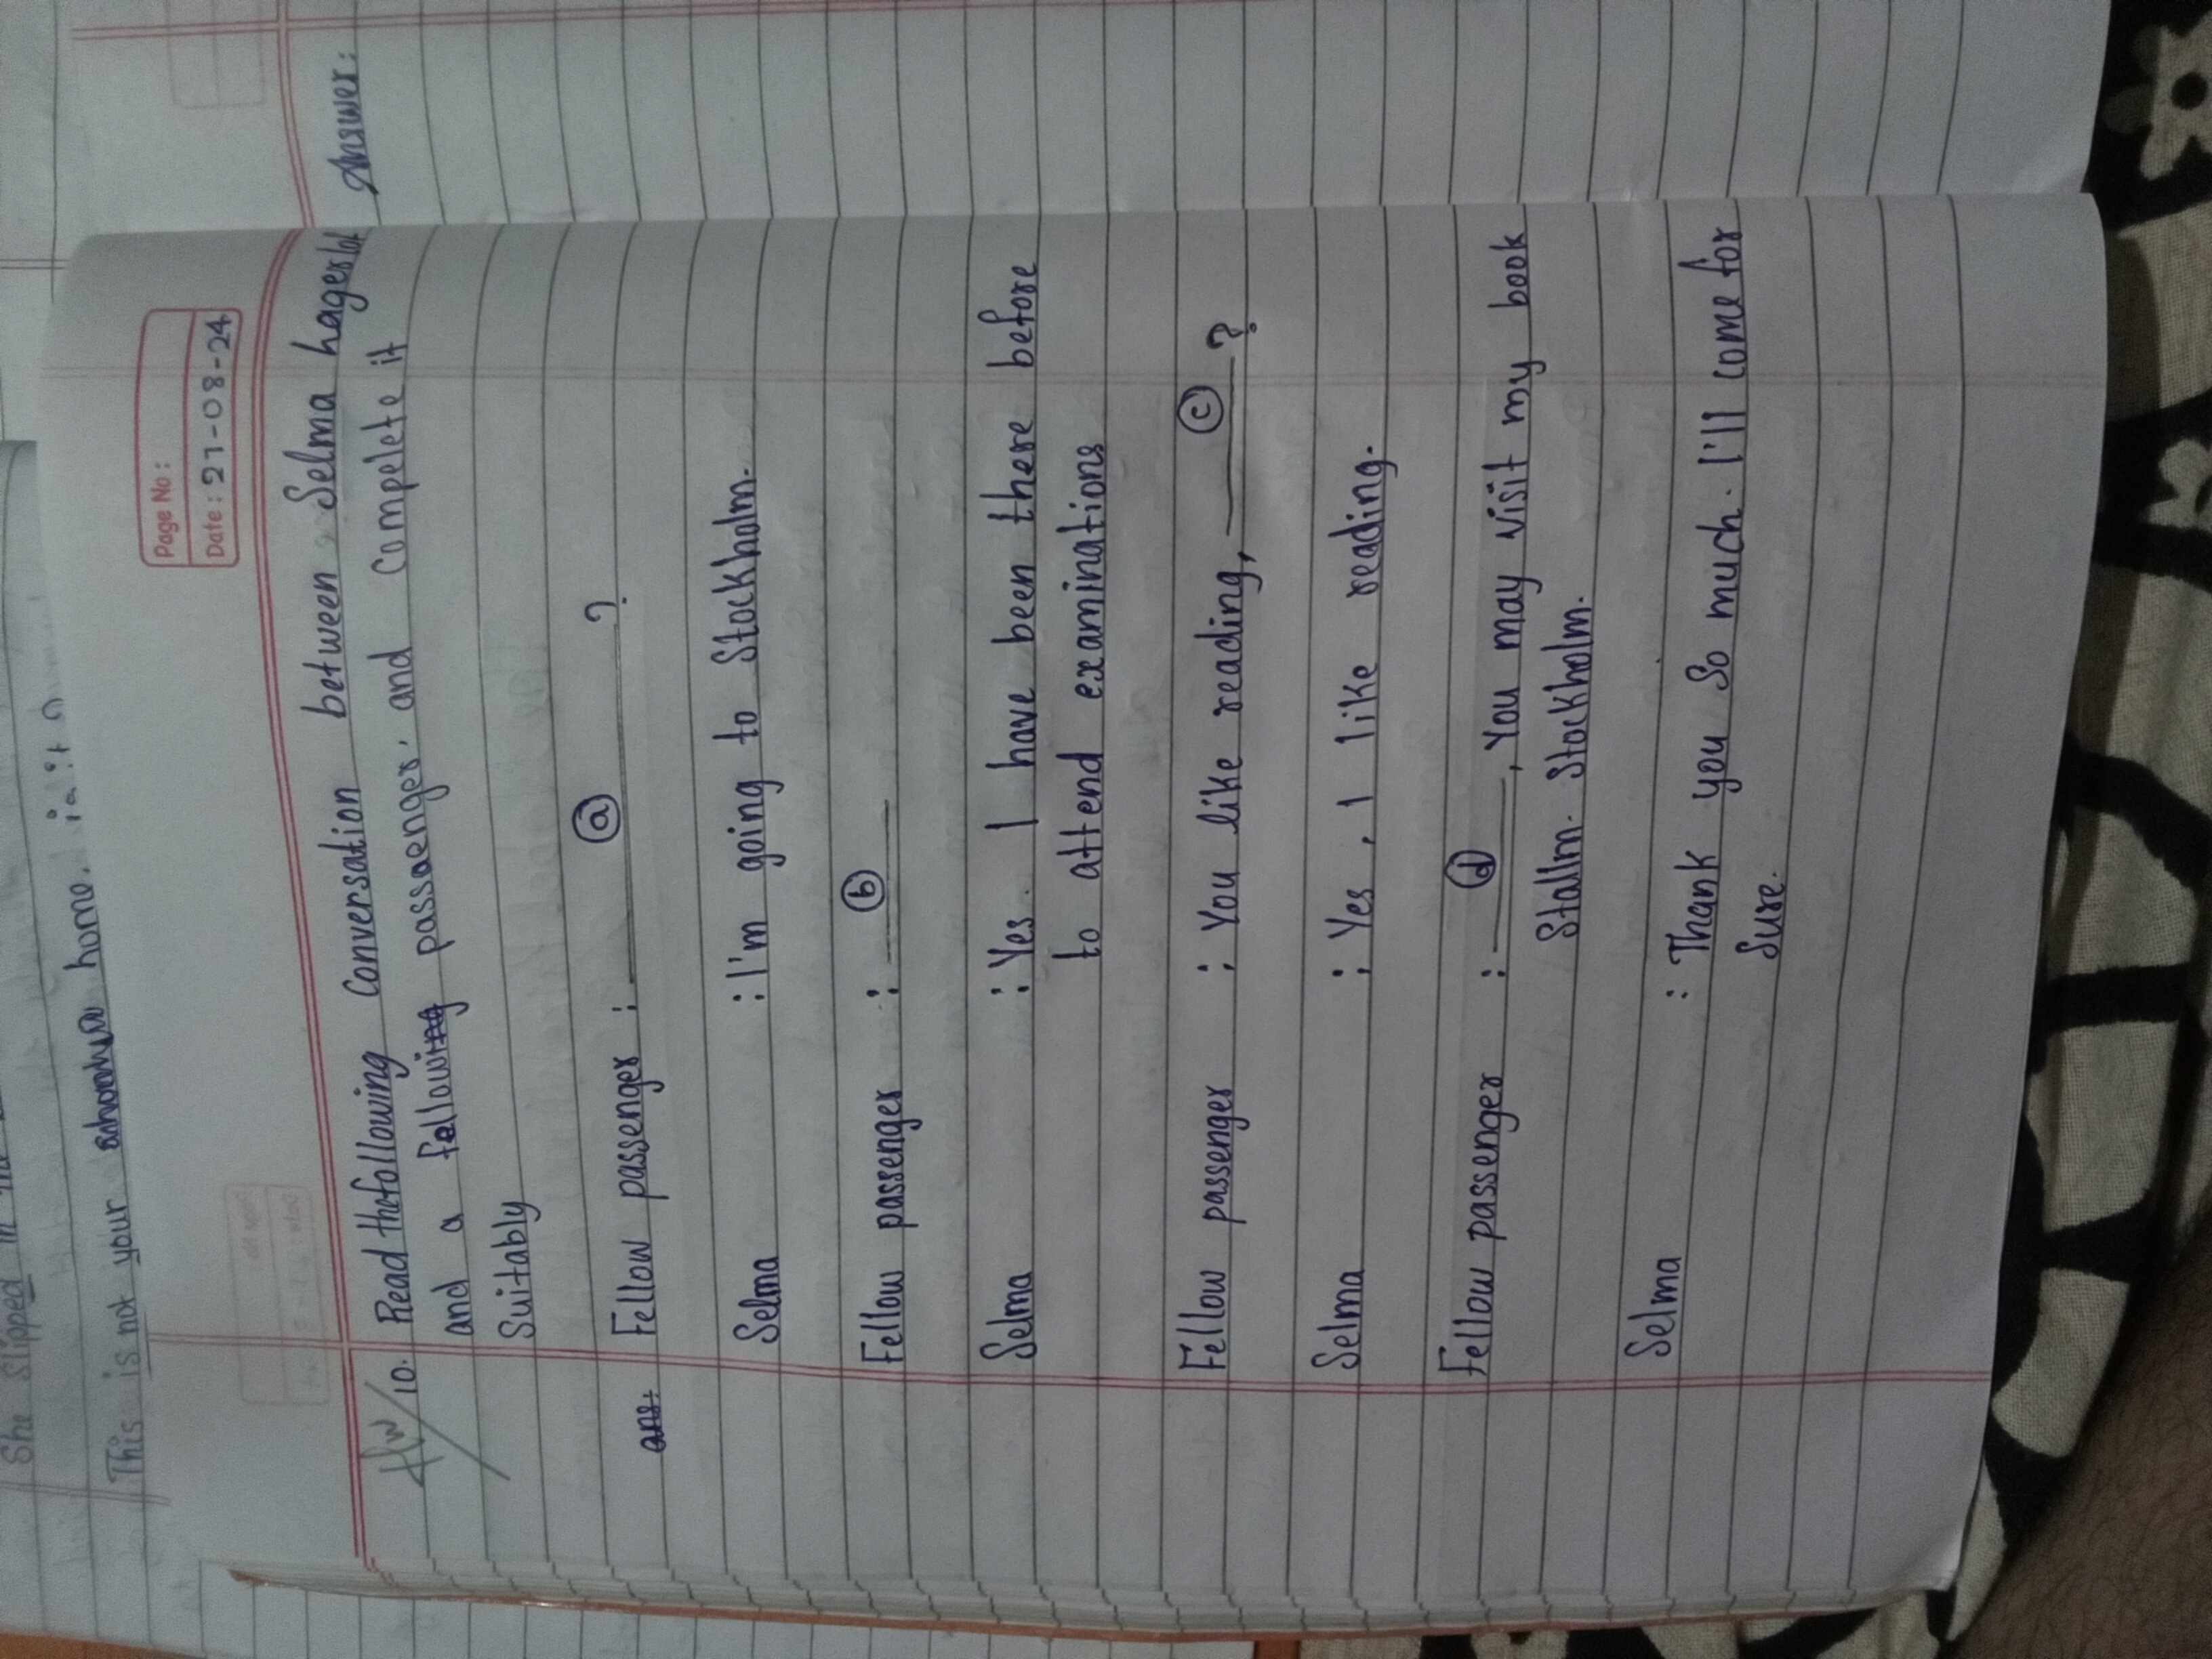 She slipped in
This is not your home.
Page No:
Date: 21-08-24
Hw
10. Read thefollowing Conversation between Selma hagerlof
and a passaenger. and compelete it
Suitably
ans. Fellow passenger : ⓐ ?
Selma : I'm going to Stockholm.
Fellow passenger : ⓑ
Selma : Yes. I have been there before
to attend examinations
Fellow passenger : You like reading, ⓒ ?
Selma : Yes, I like reading.
Fellow passenger : ⓓ , You may visit my book
Stallm. Stockholm.
Selma : Thank you So much. I'll come for
Sure.
Answer: